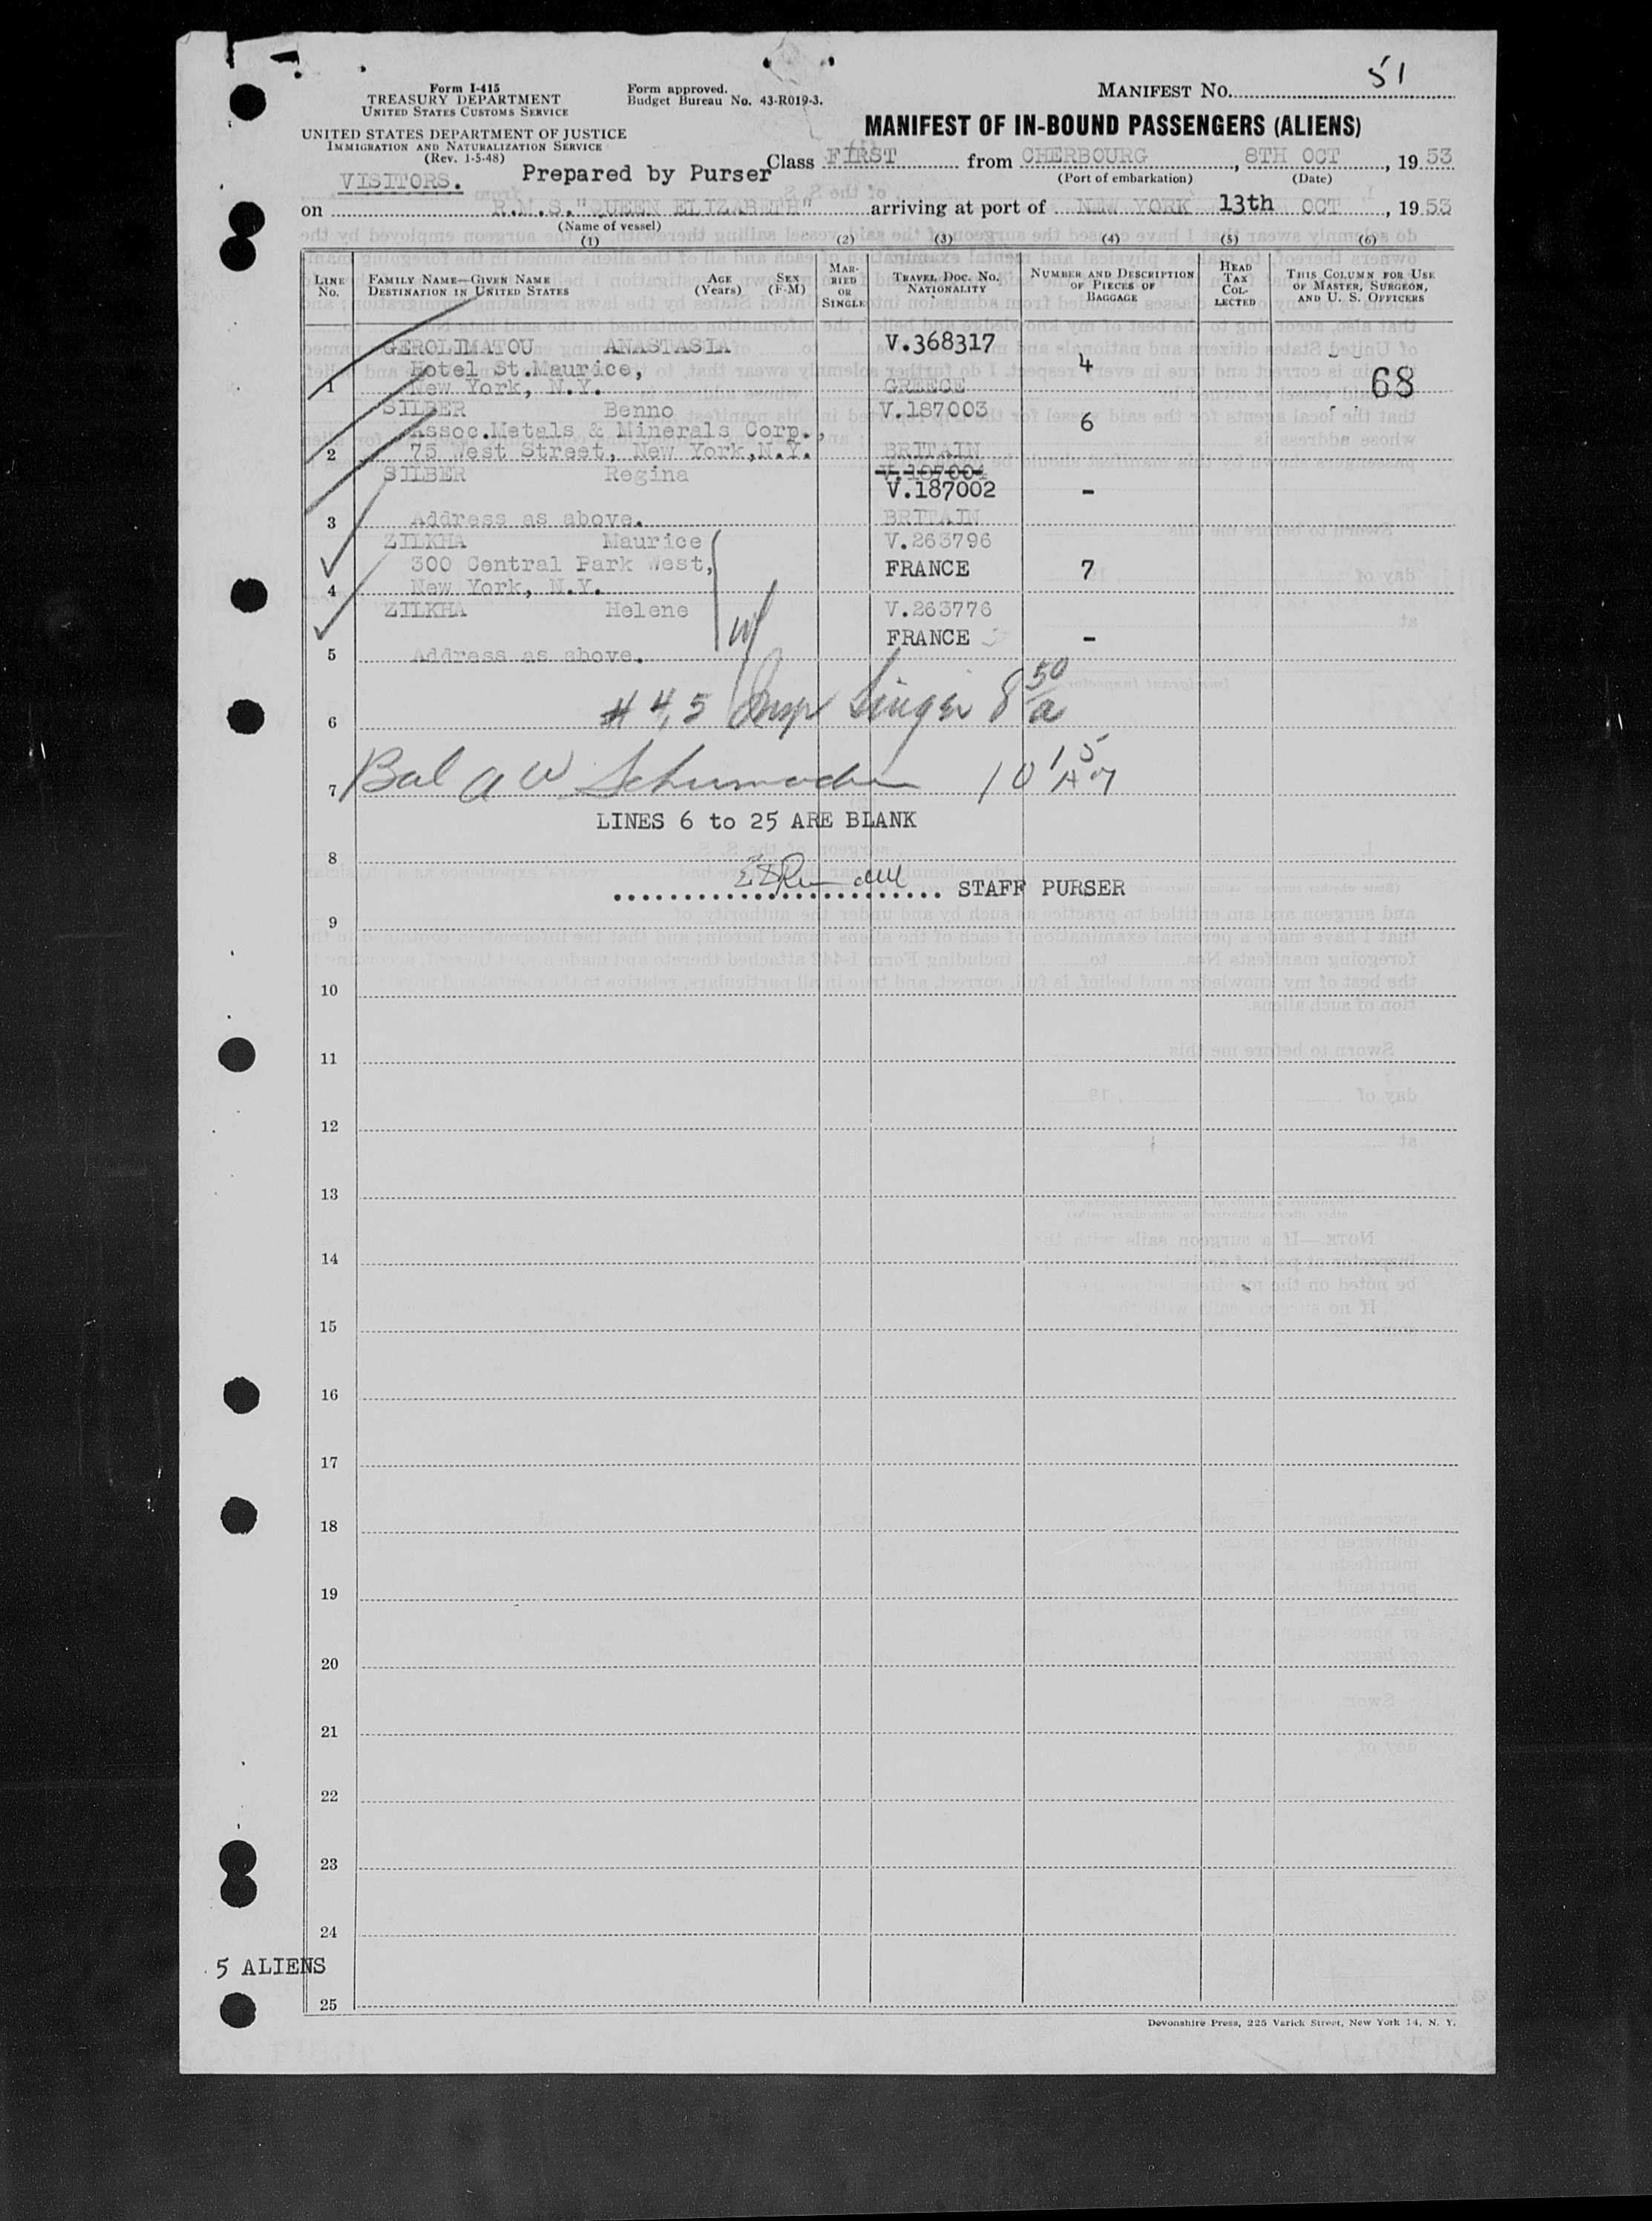 51
Form I-415
TREASURY DEPARTMENT
UNITED STATES CUSTOMS SERVICE
Form approved.
Budget Bureau No. 43-R019-3.
MANIFEST NO.
UNITED STATES DEPARTMENT OF JUSTICE
IMMIGRATION AND NATURALIZATION SERVICE
(Rev. 1-5-48)
MANIFEST OF IN-BOUND PASSENGERS (ALIENS)
VISITORS. Prepared by Purser Class FIRST from CHERBOURG, 8TH OCT, 19 53
(Port of embarkation) (Date)
on R.M.S."QUEEN ELIZABETH" arriving at port of NEW YORK 13th OCT, 19 53
(Name of vessel)
(1) (2) (3) (4) (5) (6)
LINE NO. FAMILY NAME—GIVEN NAME DESTINATION IN UNITED STATES AGE (Years) SEX (F-M) MARRIED OR SINGLE TRAVEL DOC. NO. NATIONALITY NUMBER AND DESCRIPTION OF PIECES OF BAGGAGE HEAD TAX COLLECTED THIS COLUMN FOR USE OF MASTER, SURGEON, AND U. S. OFFICERS
GEROLIMATOU ANASTASIA V.368317
Hotel St.Maurice, 4
1 New York, N.Y. GREECE 68
SILBER Benno V.187003
Assoc.Metals & Minerals Corp., 6
2 75 West Street, New York,N.Y. BRITAIN
SILBER Regina V.187004
V.187002 -
3 Address as above. BRITAIN
ZILKHA Maurice V.263796
300 Central Park West, FRANCE 7
4 New York, N.Y.
ZILKHA Helene V.263776
FRANCE -
5 Address as above.
# 4,5 Insp Singer 8 50 a
6
Bal A W Schumacher 10 15 AM
7
LINES 6 to 25 ARE BLANK
8
STAFF PURSER
9
10
11
12
13
14
15
16
17
18
19
20
21
22
23
24
5 ALIENS
25
Devonshire Press, 225 Varick Street, New York 14, N. Y.